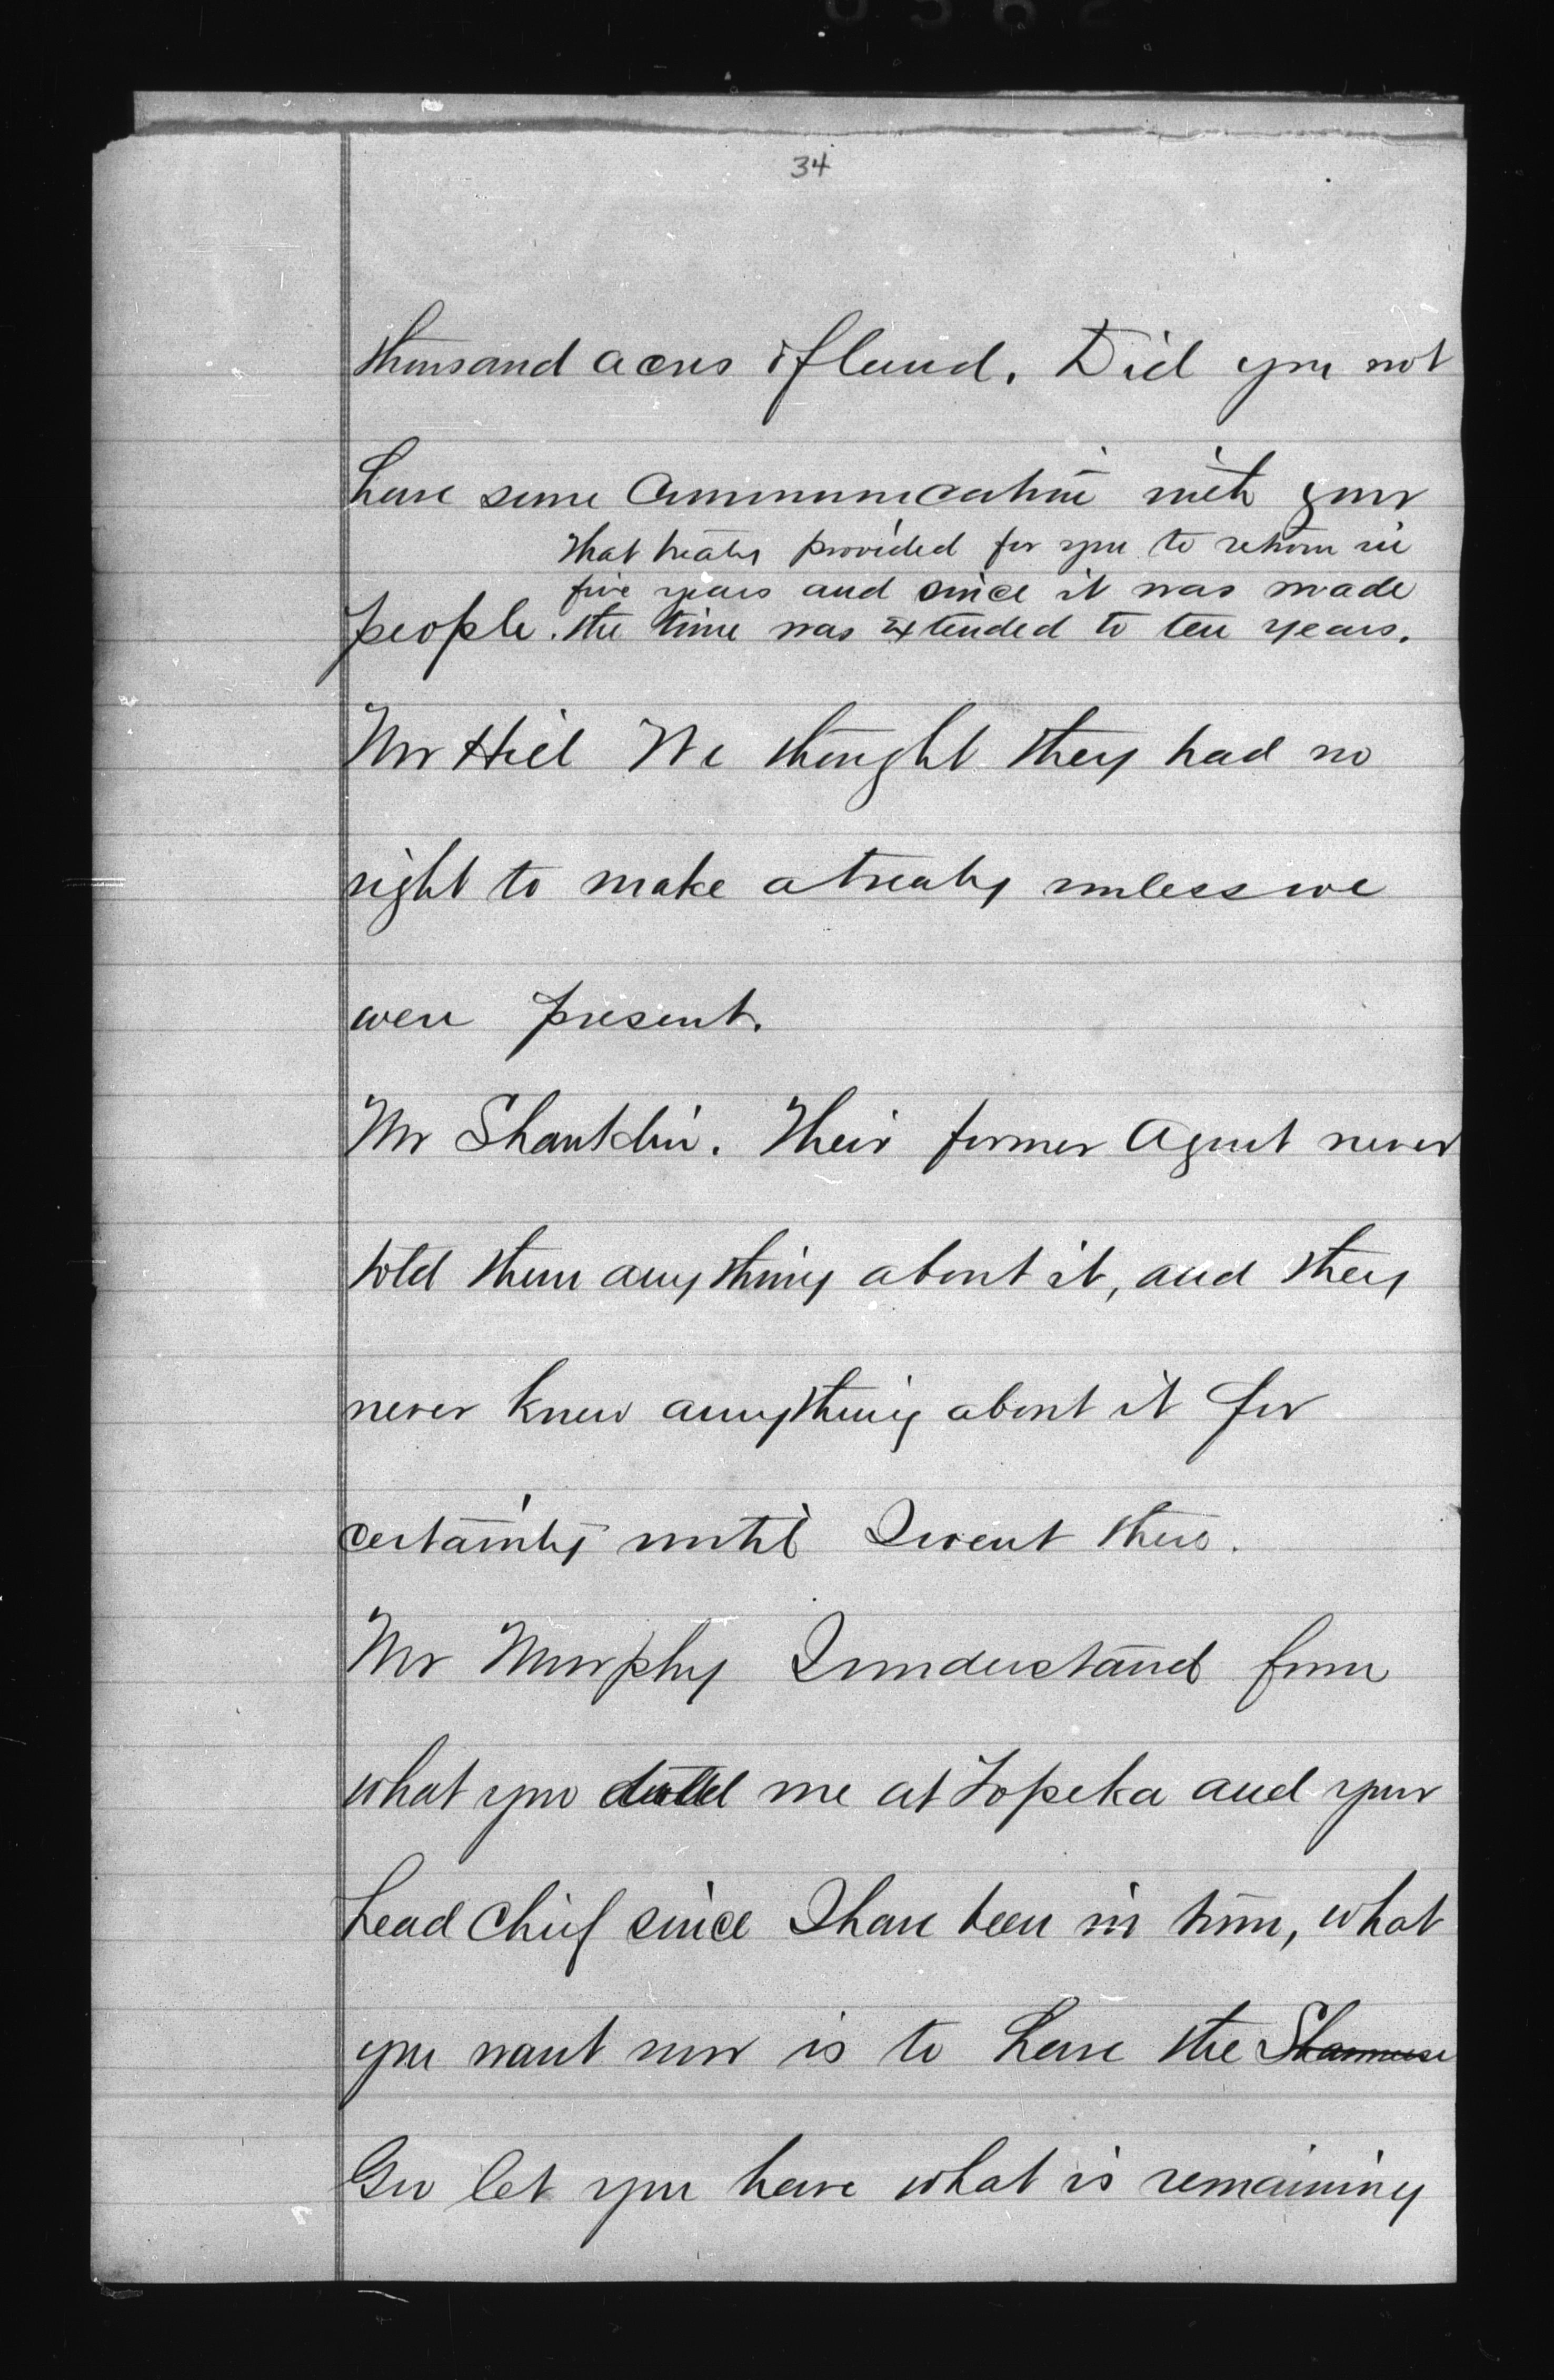 34
thousand acres of land. Did you not
have some communication with your
That treaty provided for you to return in
five years and since it was made
people. the time was extended to ten years.
Mr Hill We thought they had no
right to make a treaty unless we
were present.
Mr Shanklin. Their former Agent never
told them anything about it, and they
never knew anything about it for
certainty until I went there.
Mr Murphy I understand from
what you told me at Topeka and your
head chief since I have been in town, what
you want now is to have the Shawnese
Gov let you have what is remaining